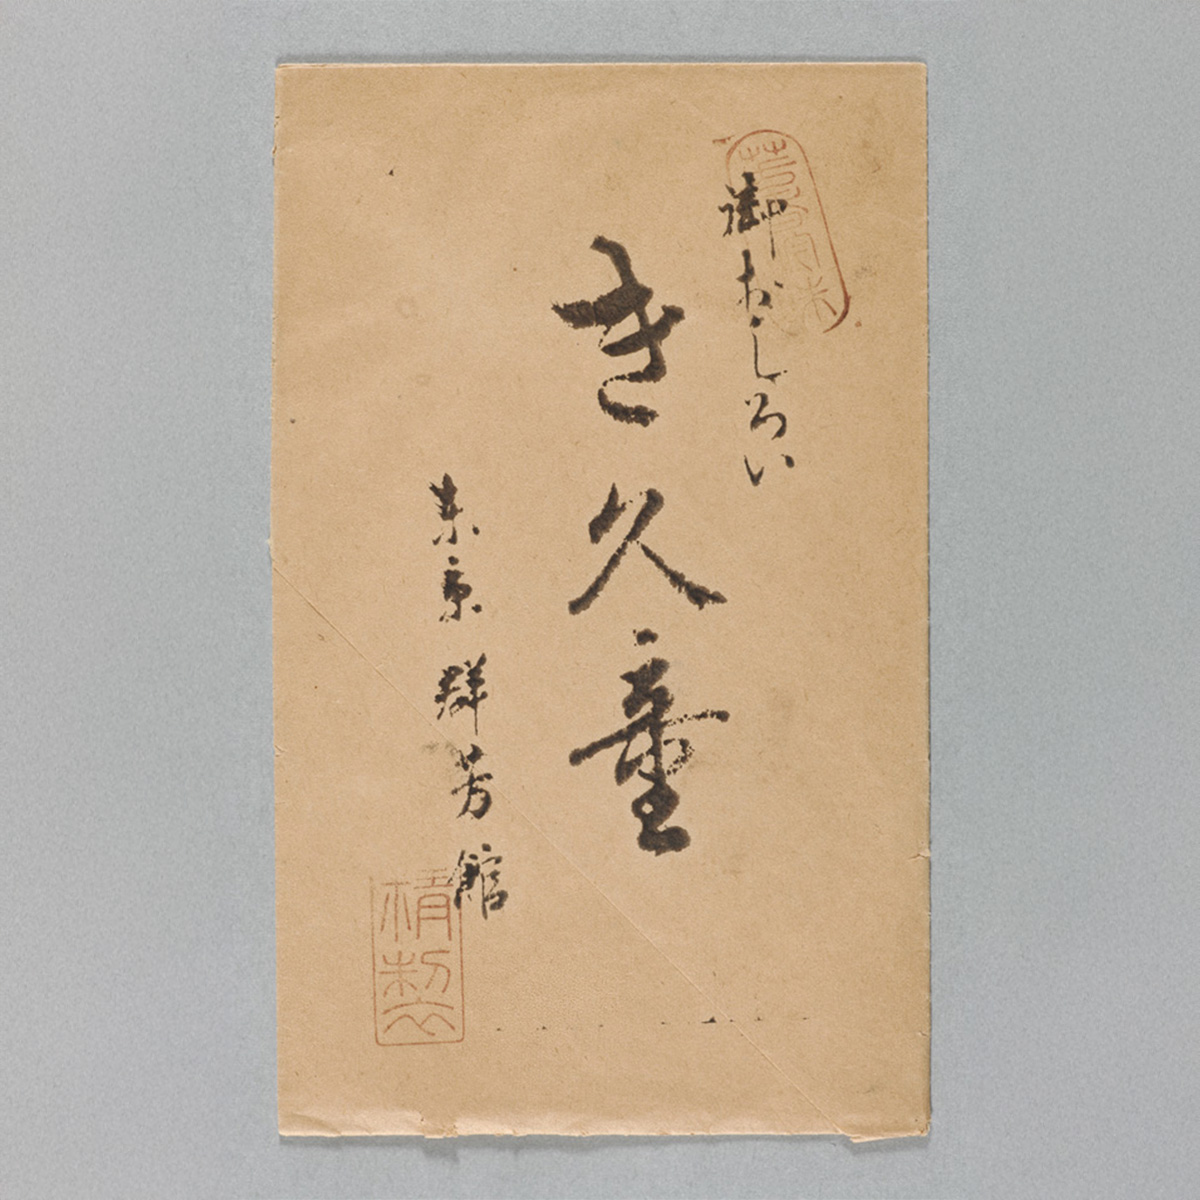 御おしろい
き久童
東京 群芳館
精製